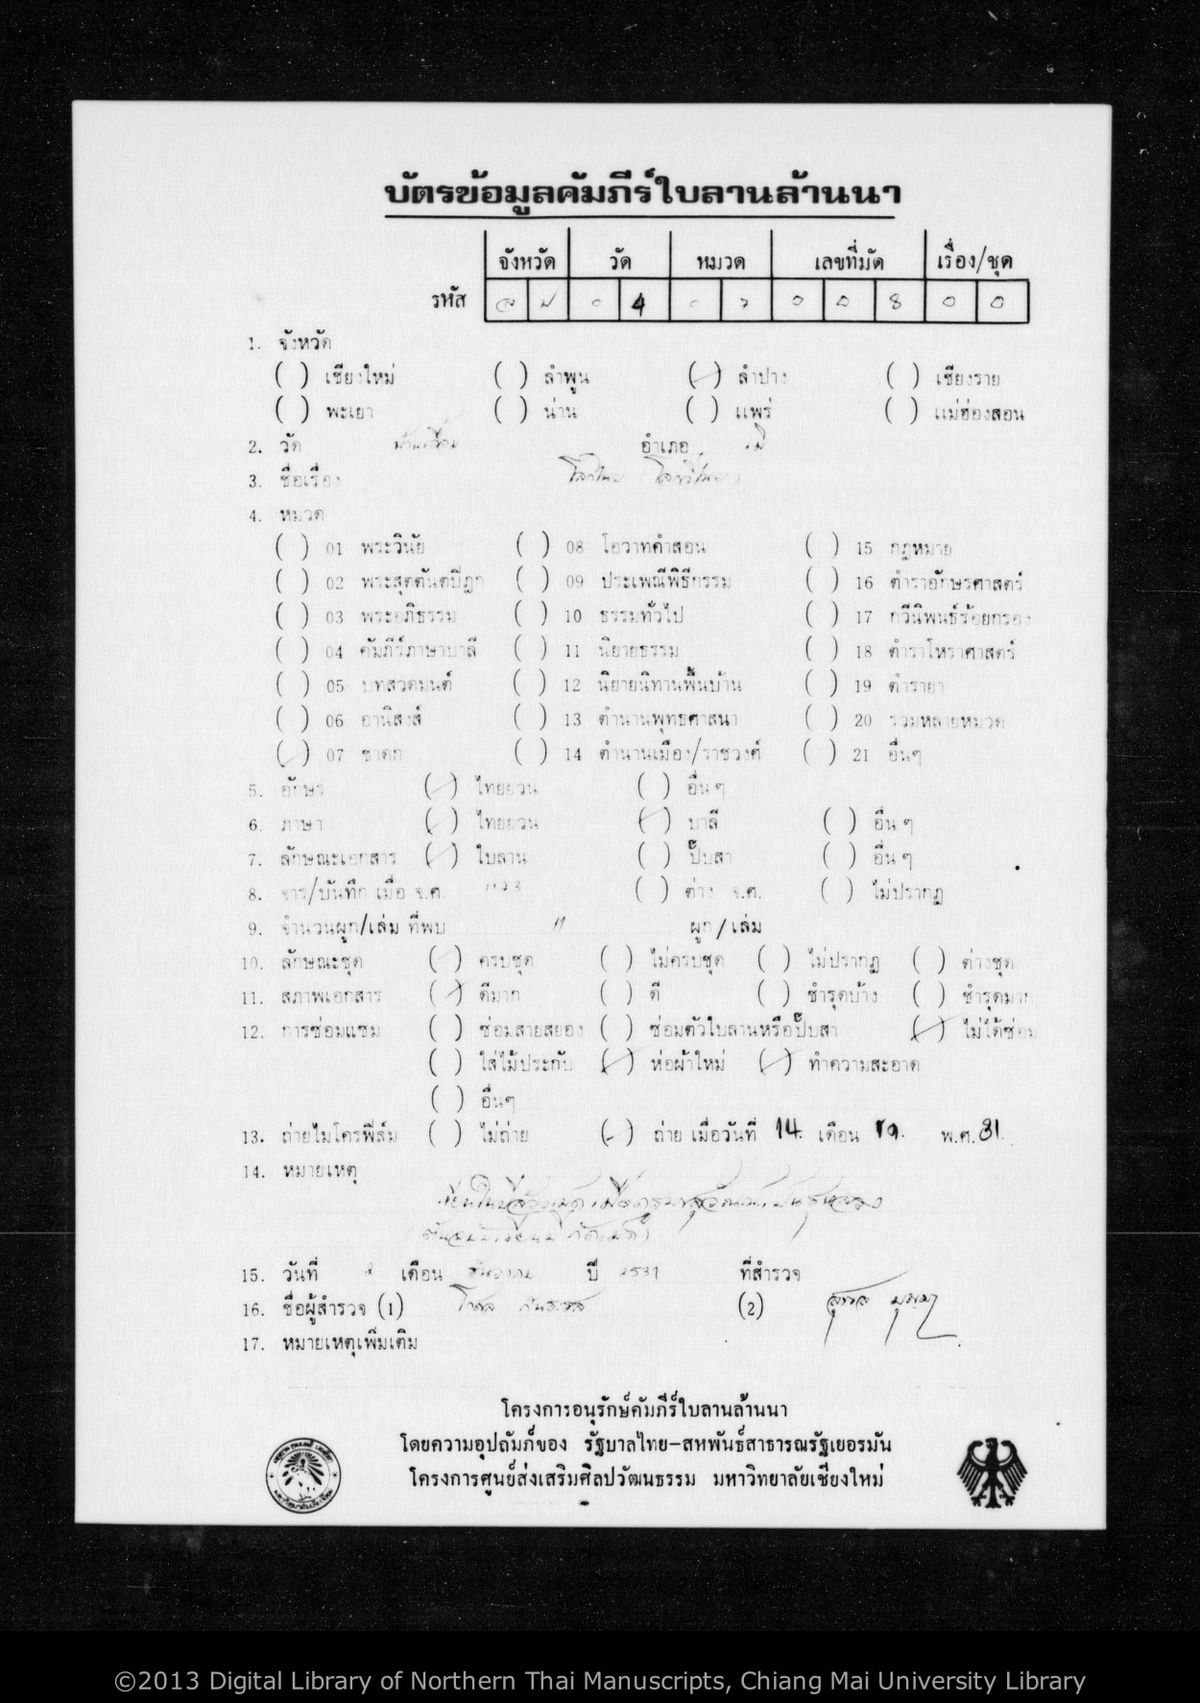 บัตรข้อมูลคัมภีร์ใบลานล้านนา
จังหวัด วัด หมวด เลขที่มัด เรื่อง/ชุด
รหัส ล ป 0 4 0 7 0 0 8 0 0
1. จังหวัด
( ) เชียงใหม่ ( ) ลำพูน (✓) ลำปาง ( ) เชียงราย
( ) พะเยา ( ) น่าน ( ) แพร่ ( ) แม่ฮ่องสอน
2. วัด อำเภอ
3. ชื่อเรื่อง
4. หมวด
( ) 01 พระวินัย ( ) 08 โอวาทคำสอน ( ) 15 กฎหมาย
( ) 02 พระสุตตันตปิฎก ( ) 09 ประเพณีพิธีกรรม ( ) 16 ตำราอักษรศาสตร์
( ) 03 พระอภิธรรม ( ) 10 ธรรมทั่วไป ( ) 17 กวีนิพนธ์ร้อยกรอง
( ) 04 คัมภีร์ภาษาบาลี ( ) 11 นิยายธรรม ( ) 18 ตำราโหราศาสตร์
( ) 05 บทสวดมนต์ ( ) 12 นิยายนิทานพื้นบ้าน ( ) 19 ตำรายา
( ) 06 อานิสงส์ ( ) 13 ตำนานพุทธศาสนา ( ) 20 รวมหลายหมวด
(✓) 07 ชาดก ( ) 14 ตำนานเมือง/ราชวงศ์ ( ) 21 อื่นๆ
5. อักษร (✓) ไทยยวน ( ) อื่นๆ
6. ภาษา (✓) ไทยยวน (✓) บาลี ( ) อื่นๆ
7. ลักษณะเอกสาร (✓) ใบลาน ( ) ปั๊บสา ( ) อื่นๆ
8. จาร/บันทึก เมื่อ จ.ศ. ( ) ต่าง จ.ศ. ( ) ไม่ปรากฏ
9. จำนวนผูก/เล่ม ที่พบ 11 ผูก/เล่ม
10. ลักษณะชุด (✓) ครบชุด ( ) ไม่ครบชุด ( ) ไม่ปรากฏ ( ) ต่างชุด
11. สภาพเอกสาร (✓) ดีมาก ( ) ดี ( ) ชำรุดบ้าง ( ) ชำรุดมาก
12. การซ่อมแซม ( ) ซ่อมสายสยอง ( ) ซ่อมตัวใบลานหรือปั๊บสา (✓) ไม่ได้ซ่อม
( ) ใส่ไม้ประกับ (✓) ห่อผ้าใหม่ (✓) ทำความสะอาด
( ) อื่นๆ
13. ถ่ายไมโครฟิล์ม ( ) ไม่ถ่าย (✓) ถ่าย เมื่อวันที่ 14 เดือน พ.ศ. 31
14. หมายเหตุ
15. วันที่ เดือน ธันวาคม ปี 2531 ที่สำรวจ
16. ชื่อผู้สำรวจ (1) (2)
17. หมายเหตุเพิ่มเติม
โครงการอนุรักษ์คัมภีร์ใบลานล้านนา
โดยความอุปถัมภ์ของ รัฐบาลไทย-สหพันธ์สาธารณรัฐเยอรมัน
โครงการศูนย์ส่งเสริมศิลปวัฒนธรรม มหาวิทยาลัยเชียงใหม่
©2013 Digital Library of Northern Thai Manuscripts, Chiang Mai University Library